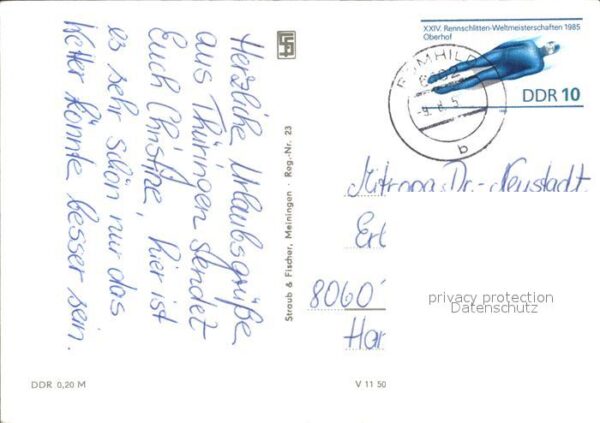 Herzliche Urlaubsgrüße
aus Thüringen sendet
Euch Christine, hier ist
es sehr schön, nur das
Wetter könnte besser sein.
Straub & Fischer, Meiningen · Reg.-Nr. 23
XXIV. Rennschlitten-Weltmeisterschaften 1985
Oberhof
DDR 10
RÖMHILD
b
Mitropa Dr.-Neustadt
8060
privacy protection
Datenschutz
DDR 0,20 M
V 11 50